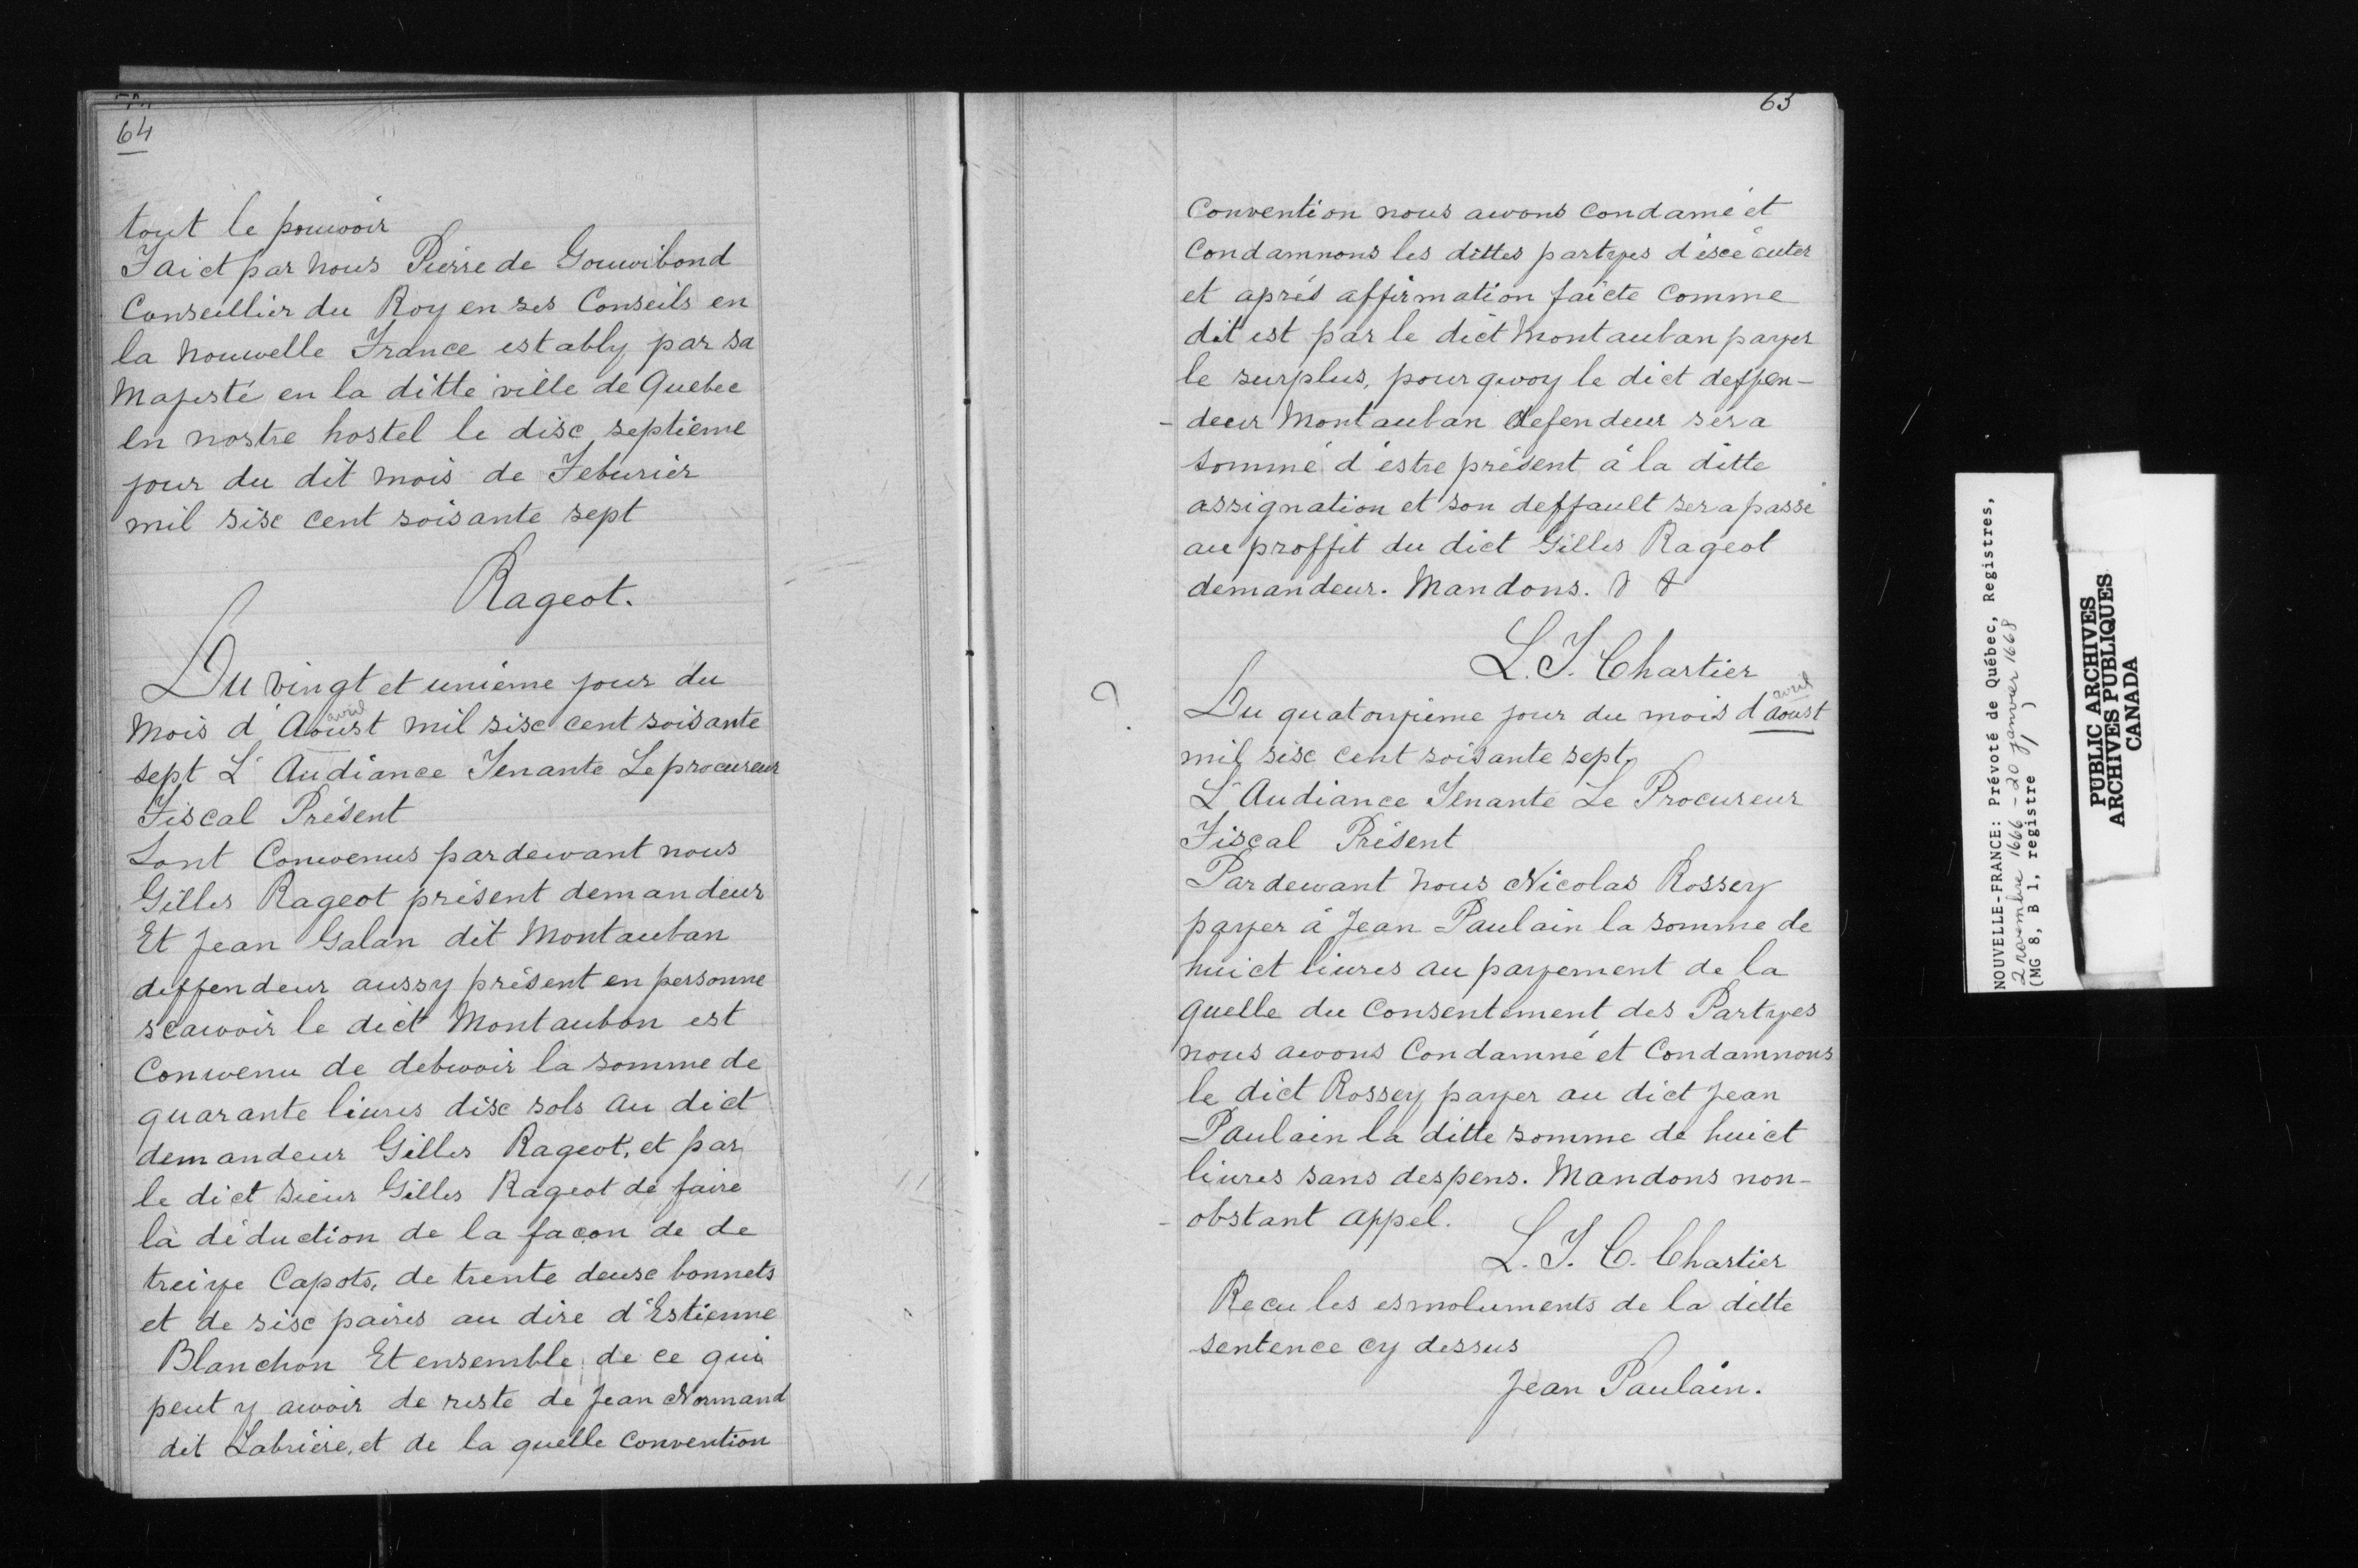 64
tout le pouwoir
Faict par nous Pierre de Gouwibond
Conseillier du Roy en ses Conseils en
la Nouwelle France estably par sa
Majesté en la ditte ville de Quebec
en nostre hostel le disc septième
jour du dit mois de Feburier
mil sisc cent soisante sept
Rageot.
Du vingt et unième jour du
avril
mois d'Aoust mil sisc cent soisante
sept L'Audiance Tenante Le procureur
Fiscal Présent
Sont Conwenus pardewant nous
Gilles Rageot présent demandeur
Et Jean Galan dit Montauban
deffendeur aussy présent en personne
scawoir le dict Montaubon est
Conwenu de debwoir la somme de
quarante liures disc sols au dict
demandeur Gilles Rageot, et par
le dict sieur Gilles Rageot de faire
la déduction de la façon de de
treize Capots, de trente deusc bonnets
et de sisc paires au dire d'Estienne
Blanchon Et ensemble de ce qui
peut y awoir de reste de Jean Normand
dit Labrière, et de la quelle Convention
63
Convention nous awons Condamé et
Condamnons les dittes partyes d'éscécuter
et aprés affirmation faicte Comme
dit est par le dict Montauban payer
le surplus, pourqwoy le dict deffen-
-deur Montauban defendeur sera
sommé d'éstre présent á la ditte
assignation et son deffault sera passé
au proffit du dict Gilles Rageot
demandeur. Mandons. & &
L. T. Chartier
avril
? Du quatorzième jour du mois d'aoust
mil sisc cent soisante sept,
L'Audiance Tenante Le Procureur
Fiscal Présent
Pardewant Nous Nicolas Rossey
payer á Jean Paulain la somme de
huict liures au payement de la
quelle du Consentement des Partyes
nous awons Condamné et Condamnons
le dict Rossey payer au dict Jean
Paulain la ditte somme de huict
liures sans despens. Mandons non-
-obstant appel.
L. T. C. Chartier
Recu les esmoluments de la ditte
sentence cy dessus
Jean Paulain.
NOUVELLE-FRANCE: Prévoté de Québec, Registres,
2 novembre 1666 - 20 janvier 1668
(MG 8, B 1, registre 1)
PUBLIC ARCHIVES
ARCHIVES PUBLIQUES
CANADA